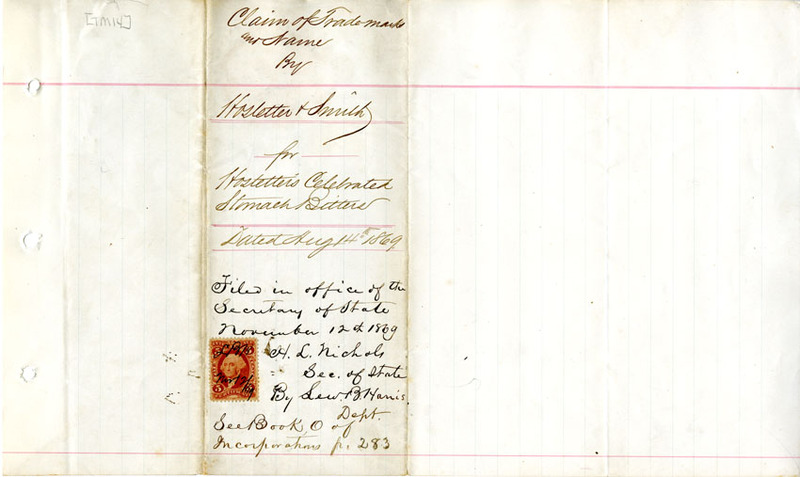 [TM14]
Claim of Trade marks
and Name
By
Hostetter & Smith
for
Hostetter's Celebrated
Stomach Bitters
Dated Aug 14th 1869
Filed in office of the
Secretary of State
November 12th 1869
H. L. Nichols
Sec. of State
By Lew. B. Harris
Dept.
See Book O of
Incorporations p. 283
5